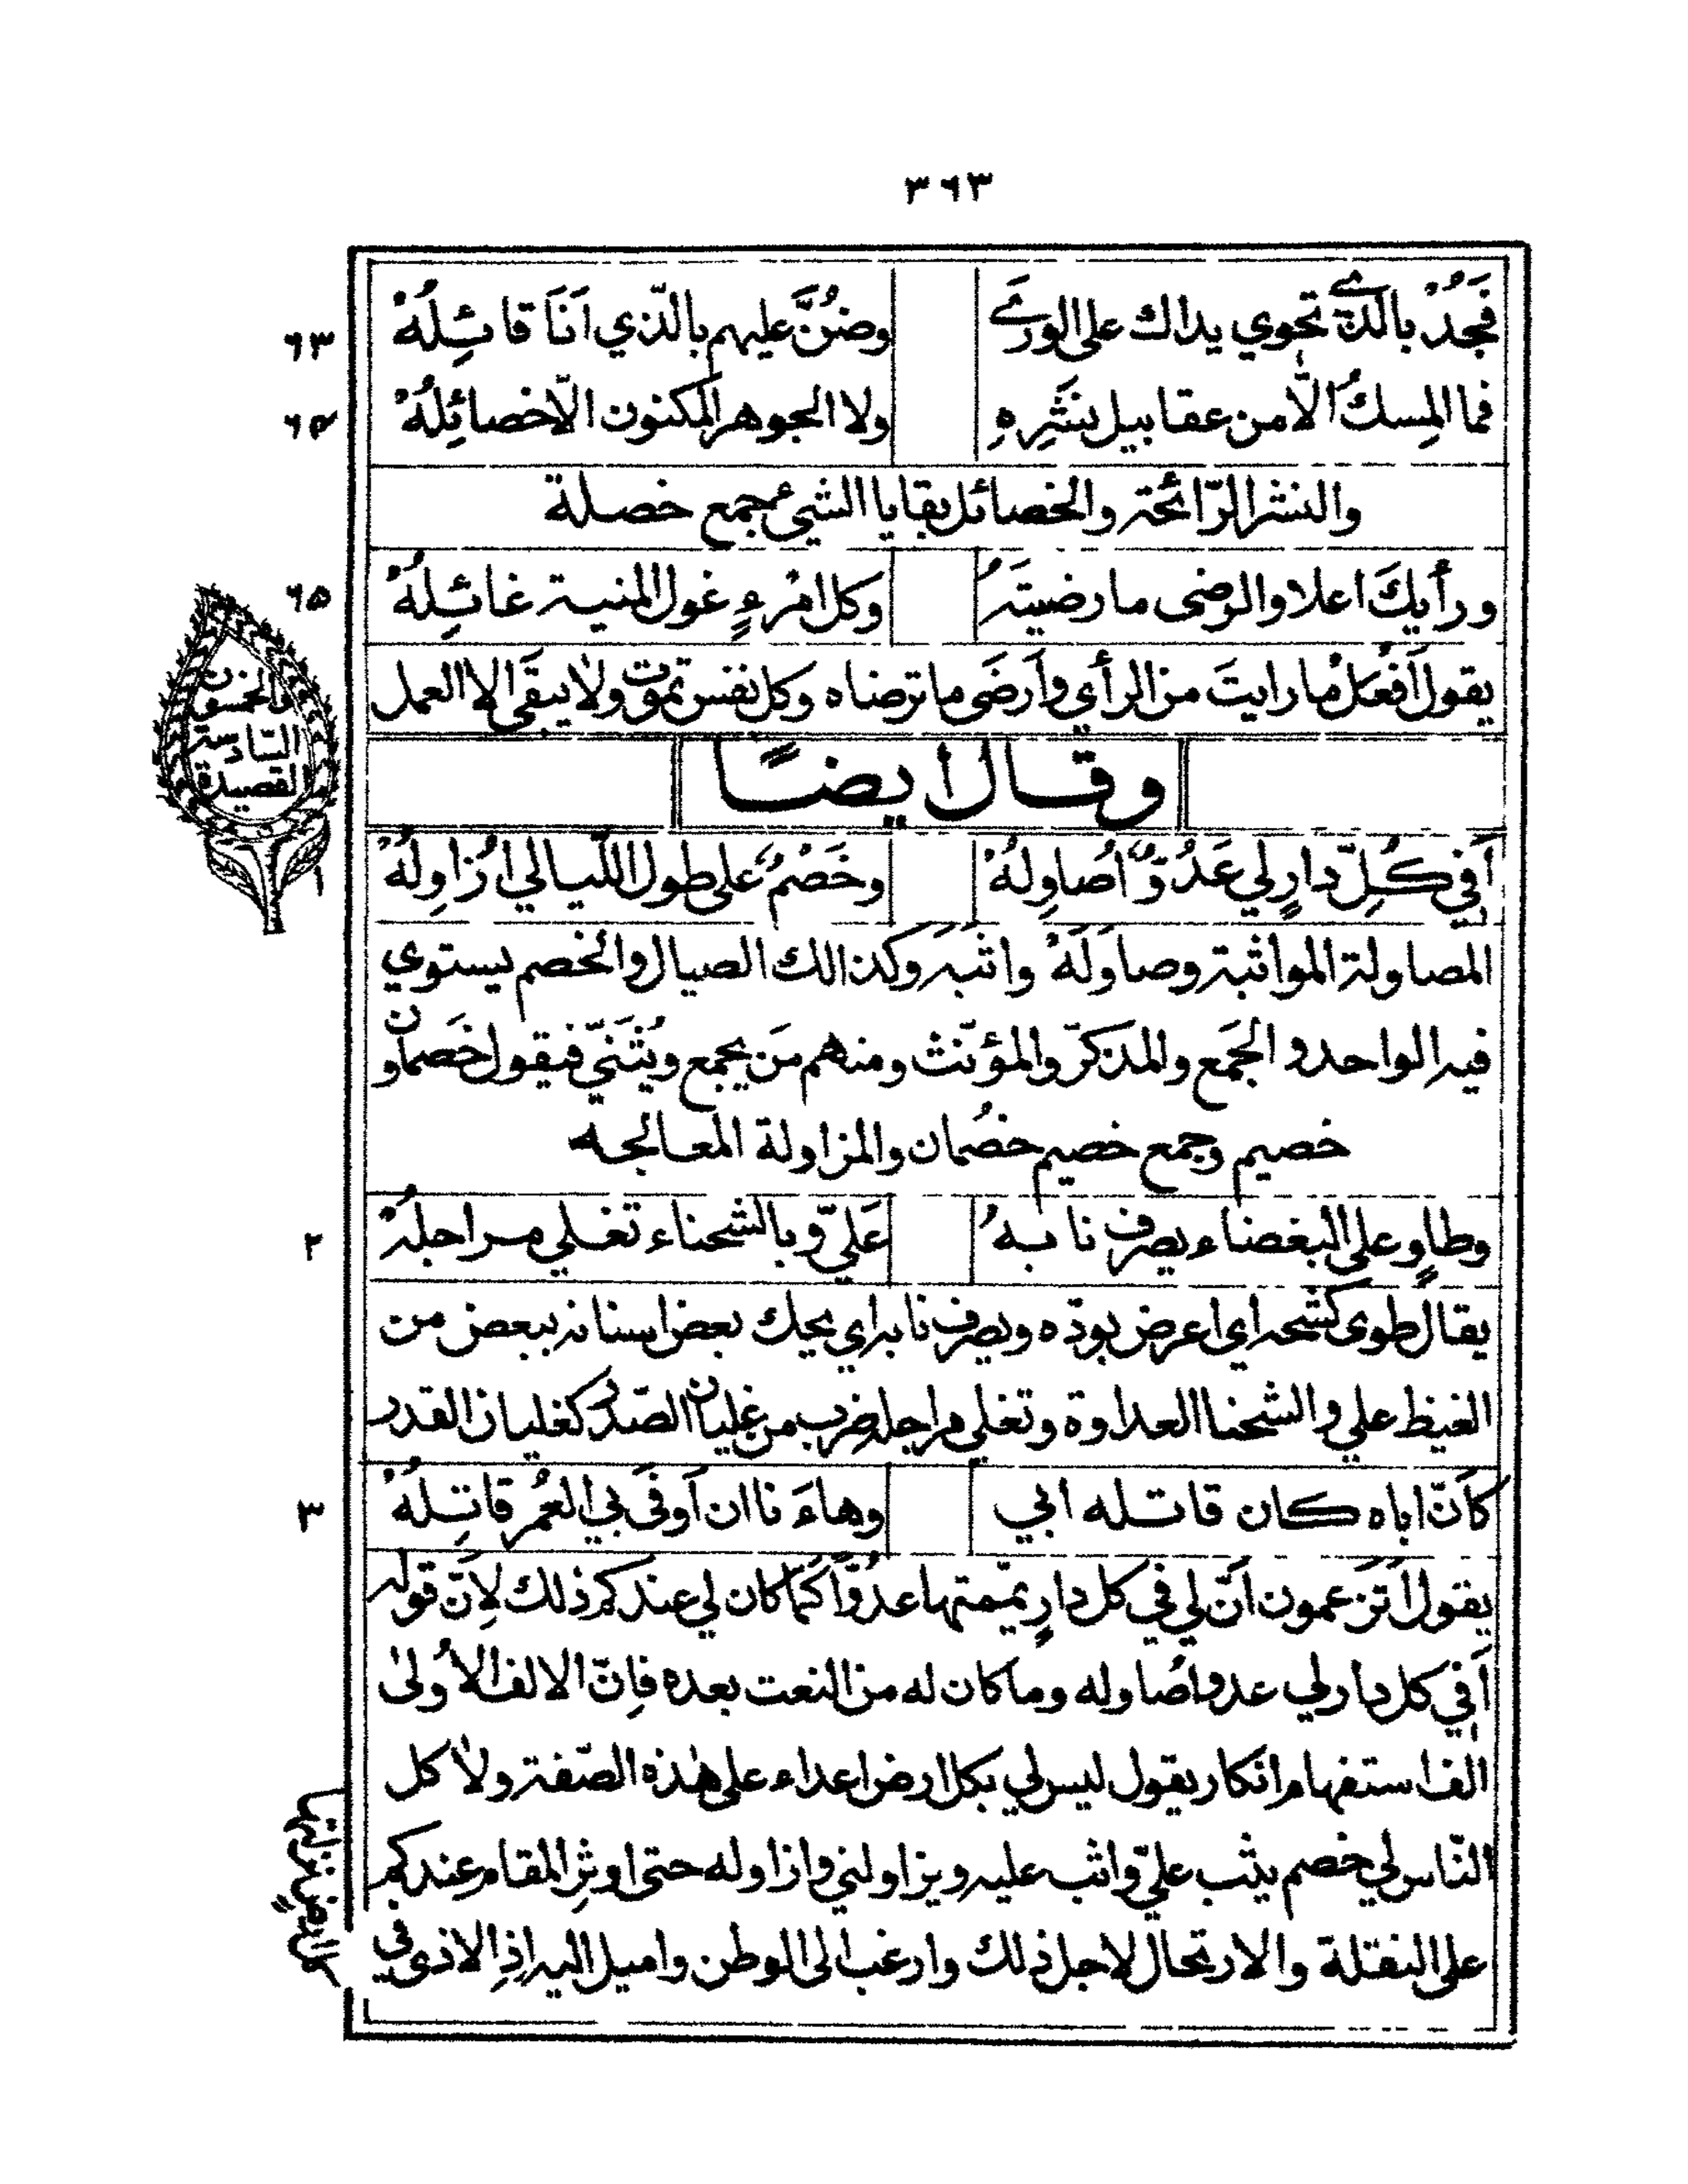 ٣٦٣
فَجُدْ بالّذي تحوي يداك على الورىَ وضُنَّ عليهم بالّذي اَنَا قائِلُهْ ٦٣
فما المِسكُ الّا من عقابيل نَشْرِهِ ولا الجوهر المكنون الّا خصائِلُهْ ٦٤
والنشر الرّائحة والخصائل بقايا الشيء جمع خصلة
ورأيكَ اعلا والرضى ما رضيتَهُ وكل امْرءٍ غول المنية غائِلُهْ ٦٥
يقول اَفْعَلْ ما رايتَ من الرأي وأرضَى ما ترضاه وكل نفس تموت ولا يبقَى الا العمل
القصيدة
السّادسة
والخمسون
وقال ايضًا
اَفي كُلّ دارٍ لي عَدُوٌّ اُصاوِلُهْ وخَصْمٌ على طول اللّيالي اُزاوِلُهْ ١
المصاولة المواثبة وصاوَلَهْ واثَبَه وكذالك الصيال والخصم يستوي
فيه الواحد والجَمْع والمذكّر والمؤنّث ومنهم مَن يجمع ويُثَنّي فيقول خَصمان و
خصيم وجمع خصيم خصُمان والمزاولة المعالجه
وطاوٍ على البغضاء يصرف نابهُ عَلَيّ وبالشحناء تغلي مراجلُهْ ٢
يقال طوى كشحه اي اعرض بودّه ويصرف نابه اي يحك بعض اسنانه ببعض من
الغيظ علي والشحنا العداوة وتغلي مراجله ضرب من غليان الصّدر كغليان القدر
كاَنّ اباه كان قاتله ابي وهاءَ نا ان اَوفَى بي العُمْر قاتِلُهْ ٣
يقول اَتَزعمون اَنّ لي في كل دارٍ يمّمتها عدُوّاً كَمَا كان لي عندكم ذلك لِاَنّ قوله
اَفي كل دار لي عدو اُصاوله وما كان له من النعت بعده فاِنّ الالف الاُولىٰ
الف استفهام انكار يقول ليس لي بكل ارض اعداء على هٰذه الصّفة ولا كل
النّاس لي خصم يثب عليّ واثب عليه ويزاولني وازاوله حتى اوثر المقام عِندكم
على النقلة والارتحال لاجل ذلك وارغب الى الوطن واميل اليه اِذِ الاذى في